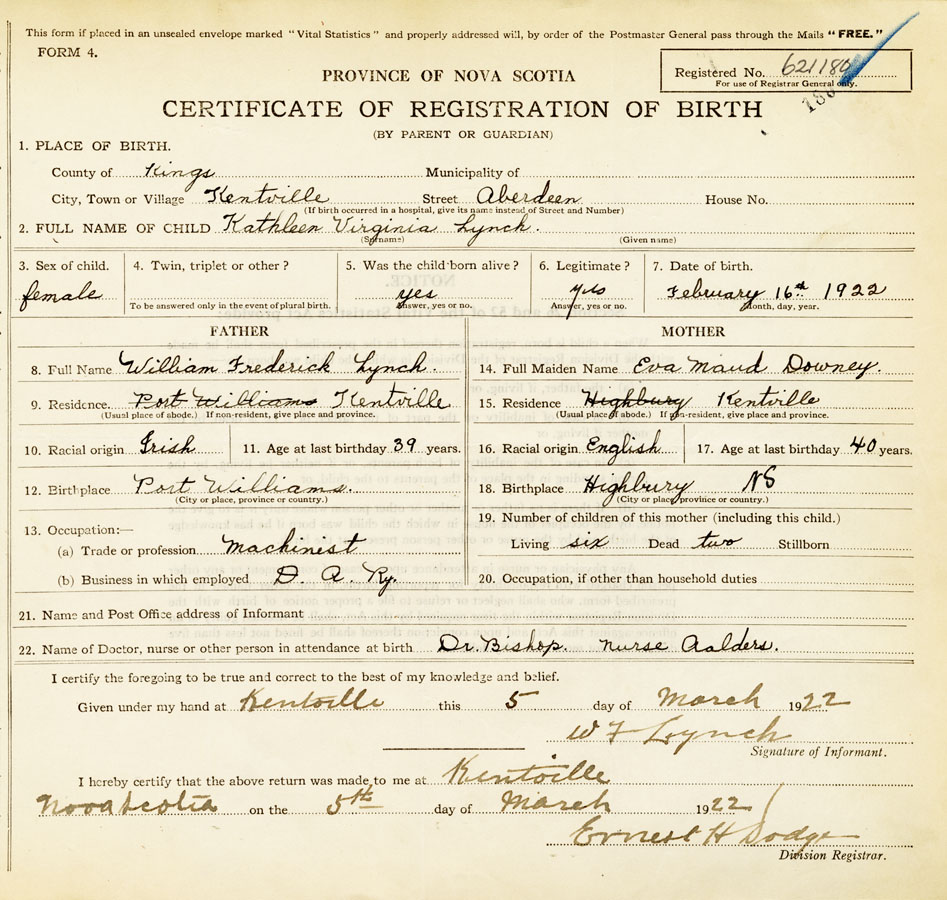 This form if placed in an unsealed envelope marked "Vital Statistics" and properly addressed will, by order of the Postmaster General pass through the Mails "FREE."
FORM 4.
Registered No. 621180
For use of Registrar General only.
PROVINCE OF NOVA SCOTIA
CERTIFICATE OF REGISTRATION OF BIRTH
(BY PARENT OR GUARDIAN)
1. PLACE OF BIRTH.
County of Kings Municipality of
City, Town or Village Kentville Street Aberdeen House No.
(If birth occurred in a hospital, give its name instead of Street and Number)
2. FULL NAME OF CHILD Kathleen Virginia Lynch.
(Surname) (Given name)
3. Sex of child. 4. Twin, triplet or other? 5. Was the child born alive? 6. Legitimate? 7. Date of birth.
female yes yes February 16th 1922
To be answered only in the event of plural birth. Answer, yes or no. Answer, yes or no. Month, day, year.
FATHER MOTHER
8. Full Name William Frederick Lynch. 14. Full Maiden Name Eva Maud Downey.
9. Residence. Port Williams Kentville 15. Residence Highbury Kentville
(Usual place of abode.) If non-resident, give place and province. (Usual place of abode.) If non-resident, give place and province.
10. Racial origin Irish 11. Age at last birthday 39 years. 16. Racial origin English 17. Age at last birthday 40 years.
12. Birthplace Port Williams. 18. Birthplace Highbury NS
(City or place, province or country.) (City or place, province or country.)
13. Occupation:— 19. Number of children of this mother (including this child.)
(a) Trade or profession Machinist Living six Dead two Stillborn
(b) Business in which employed D. A. Ry. 20. Occupation, if other than household duties
21. Name and Post Office address of Informant
22. Name of Doctor, nurse or other person in attendance at birth Dr. Bishop. Nurse Aalders.
I certify the foregoing to be true and correct to the best of my knowledge and belief.
Given under my hand at Kentville this 5 day of March 1922
W F Lynch
Signature of Informant.
I hereby certify that the above return was made to me at Kentville
Nova Scotia on the 5th day of March 1922
Ernest H Dodge
Division Registrar.